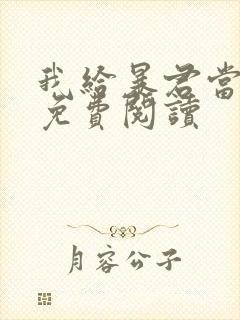 我給暴君當
免費閱讀
月容公子